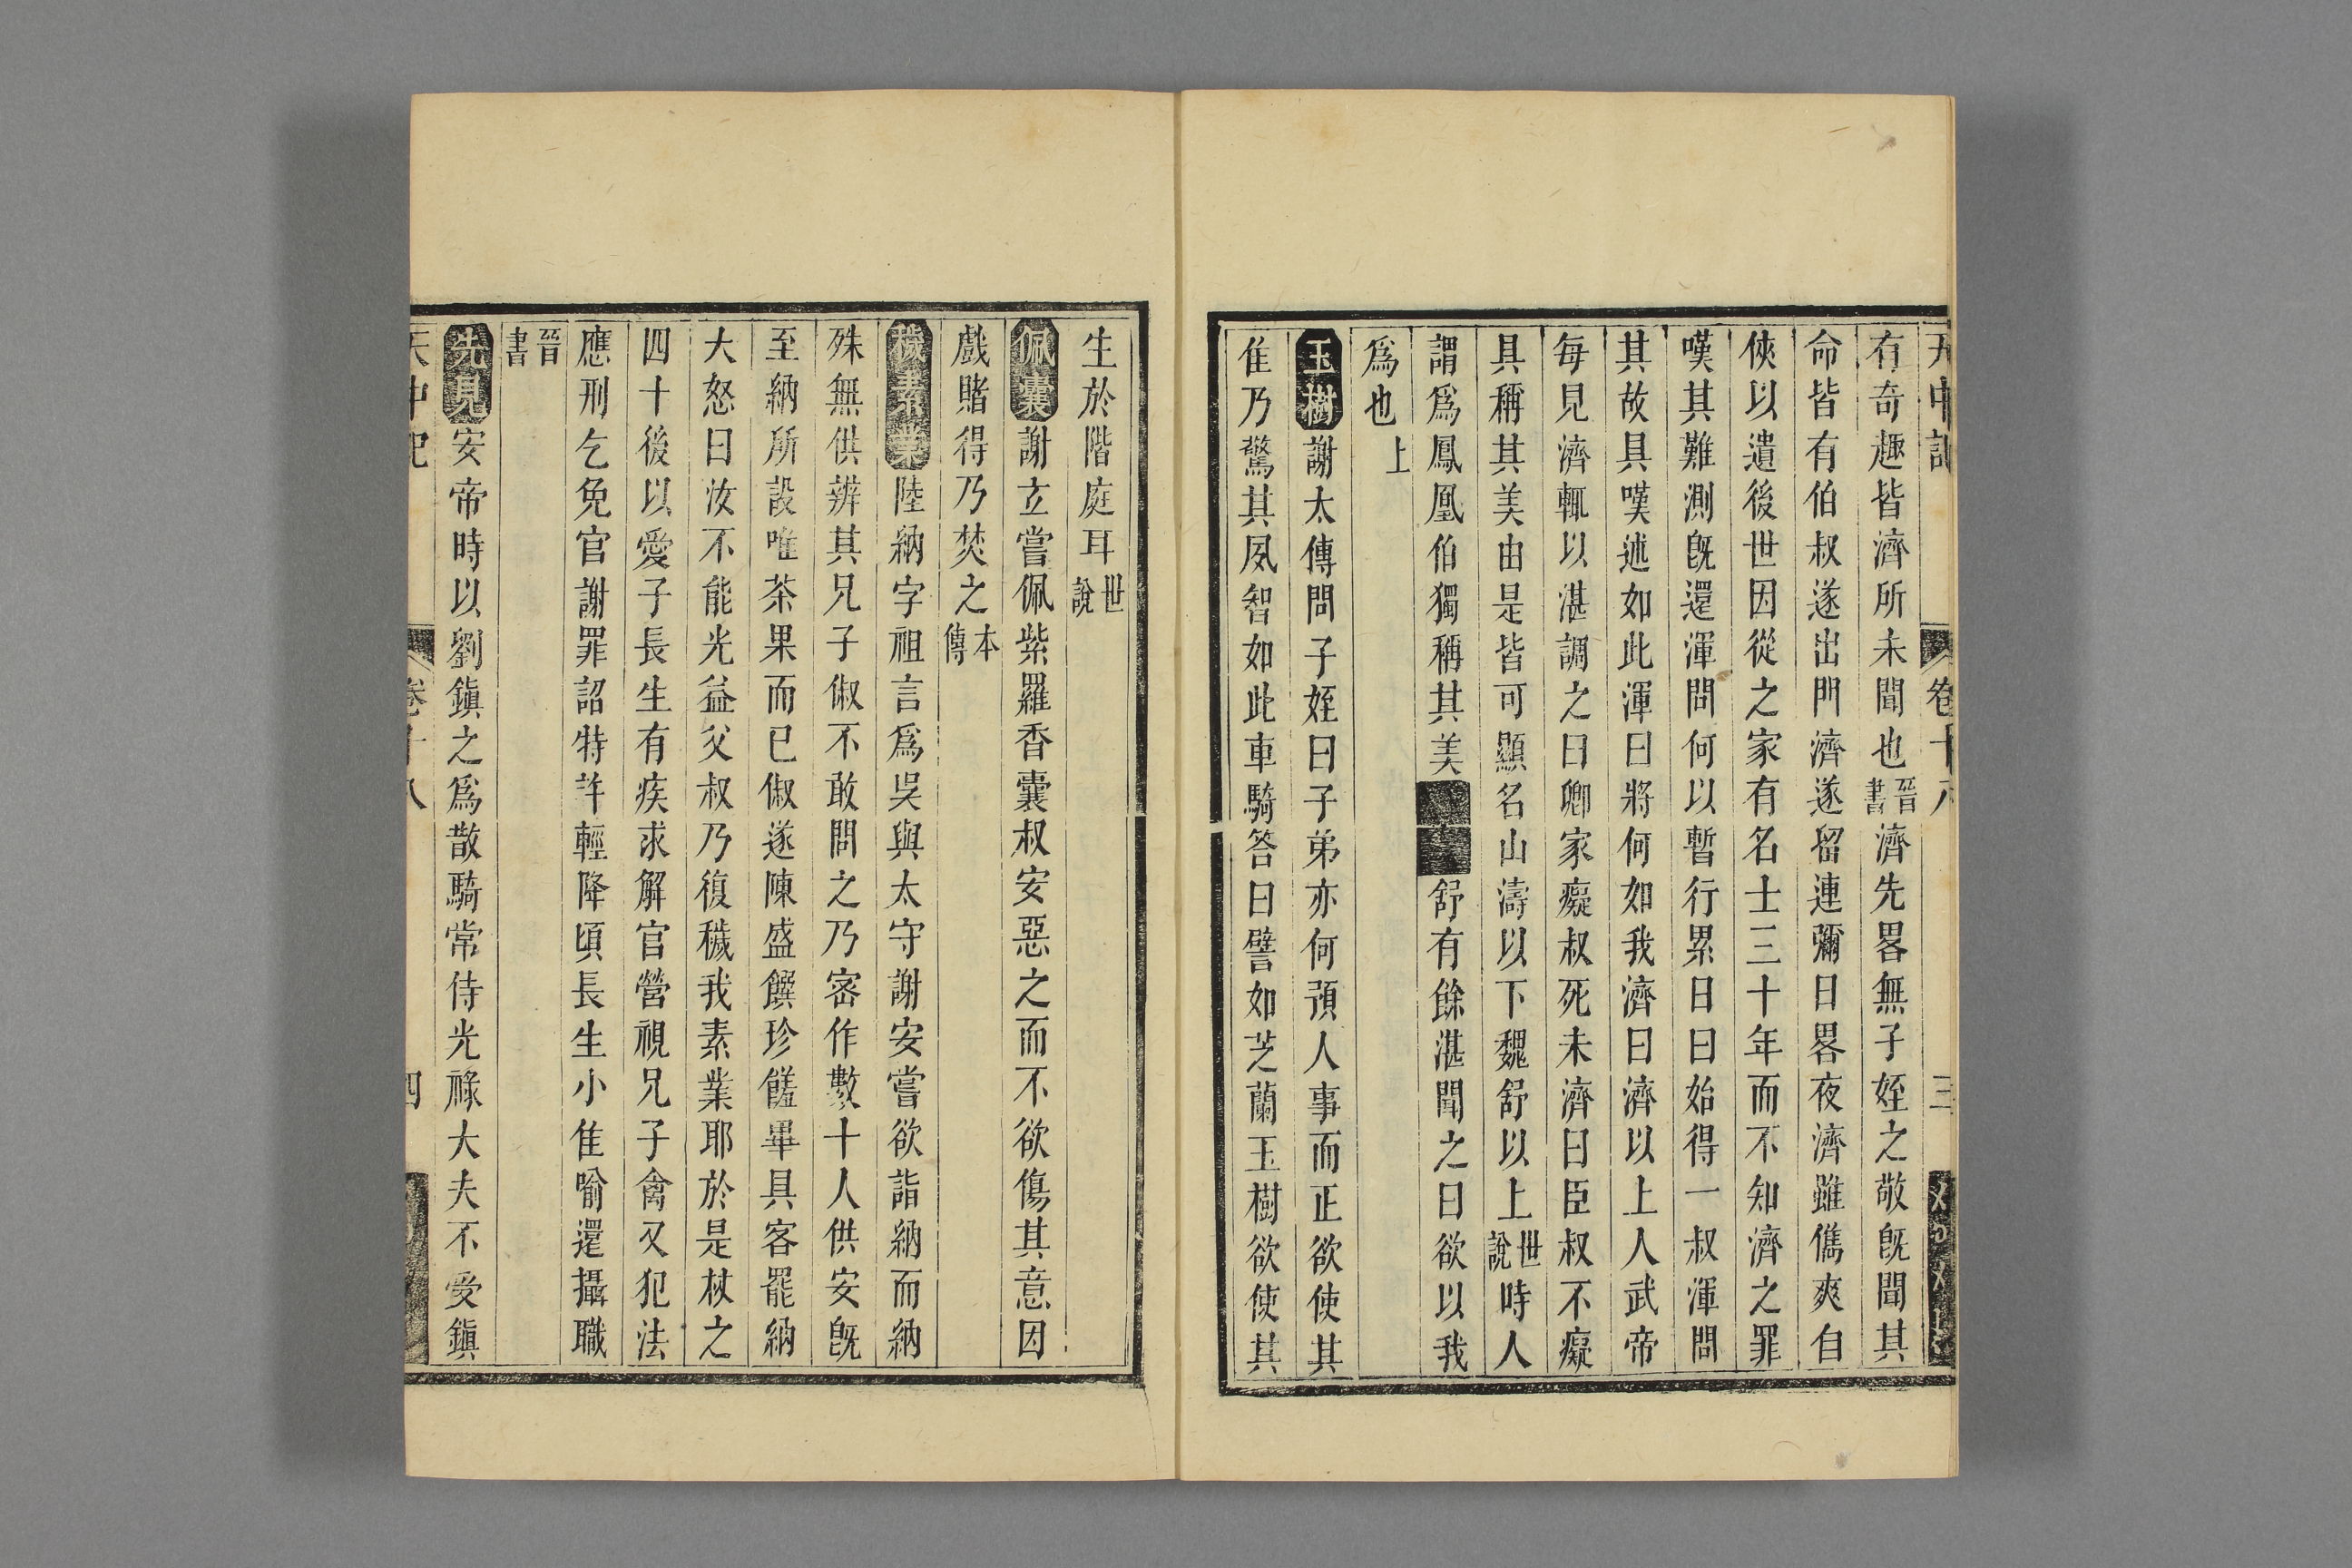 天中記 卷十八 三
有奇趣皆濟所未聞也晉書濟先畧無子姪之敬旣聞其
命皆有伯叔遂出門濟遂留連彌日畧夜濟雖儁爽自
俠以遺後世因從之家有名士三十年而不知濟之罪
嘆其難測旣還渾問何以暫行累日曰始得一叔渾問
其故具嘆述如此渾曰將何如我濟曰濟以上人武帝
每見濟輒以湛調之曰卿家癡叔死未濟曰臣叔不癡
具稱其美由是皆可顯名山濤以下魏舒以上世說時人
謂爲鳳凰伯獨稱其美舒有餘湛聞之曰欲以我
爲也上
玉樹謝太傅問子姪曰子弟亦何預人事而正欲使其
隹乃驚其夙智如此車騎答曰譬如芝蘭玉樹欲使其
生於階庭耳世說
佩囊謝玄嘗佩紫羅香囊叔安惡之而不欲傷其意因
戲賭得乃焚之本傳
穢素業陸納字祖言爲吳與太守謝安嘗欲詣納而納
殊無供辨其兄子俶不敢問之乃密作數十人供安旣
至納所設唯茶果而已俶遂陳盛饌珍饈畢具客罷納
大怒曰汝不能光益父叔乃復穢我素業耶於是杖之
四十後以愛子長生有疾求解官營視兄子禽又犯法
應刑乞免官謝罪詔特許輕降頃長生小隹喻還攝職
晉書
先見安帝時以劉鎭之爲散騎常侍光祿大夫不受鎭
天中記 卷十八 四